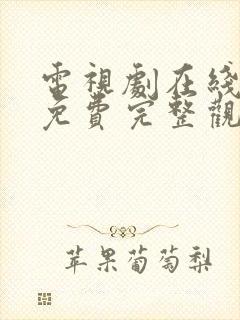 電視劇在綫
免費完整觀
苹果葡萄梨